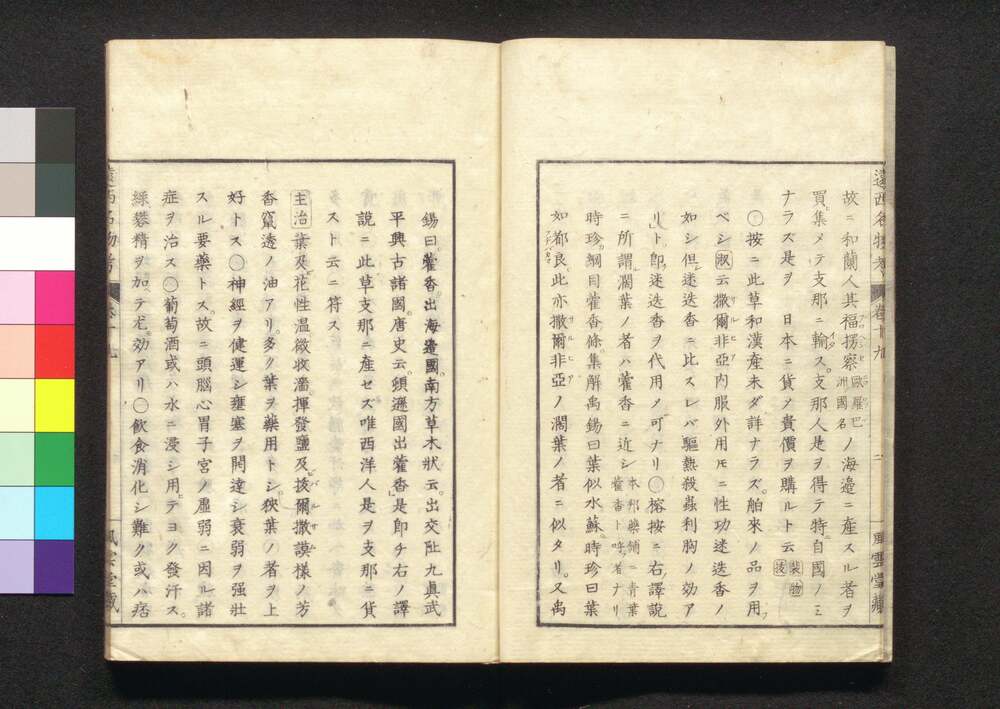 遠西名物考 卷十九 二 風雲堂藏
故ニ和蘭人其福楞察歐羅巴洲國名ノ海邉ニ產スル者ヲ
買集メテ支那ニ輸ス。支那人是ヲ得テ特自國ノミ
ナラズ是ヲ 日本ニ貨メ貴價ヲ購ルト云
○按ニ此草和漢產未ダ詳ナラズ。舶來ノ品ヲ用フ
ベシ 淑云撒爾非亞内服外用𪜈ニ性功迷迭香ノ
如シ但迷迭香ニ比スレバ驅熱殺蟲利胸ノ効ア
リト即迷迭香ヲ代用メ可ナリ○榕按ニ右譯說
ニ所謂濶葉ノ者ハ藿香ニ近シ本邦藥鋪ニ青葉藿香ト呼者ナリ
時珍綱目藿香條集解禹錫曰葉似水蘇。時珍曰葉
如都良。此亦撒爾非亞ノ濶葉ノ者ニ似タリ。又禹
錫曰藿香出海邉國南方草木狀云。出交阯九真武
平興古諸國。唐史云。頞遜國出藿香是即チ右ノ譯
說ニ此草支那ニ產セズ唯西洋人是ヲ支那ニ貨
スト云ニ符ス
主治 葉及ビ花性温微收濇。揮發鹽及拔爾撒謨樣ノ芳
香竄透ノ油アリ。多ク葉ヲ藥用トシ。狹葉ノ者ヲ上
好トス○神經ヲ健運シ壅塞ヲ開達シ衰弱ヲ强壯
スル要藥トス。故ニ頭腦心胃子宮ノ虛弱ニ因ル諸
症ヲ治ス○葡萄酒或ハ水ニ浸シ用テヨク發汗ス。
綠礬精ヲ加テ尤効アリ○飲食消化シ難ク或ハ痞
遠西名物考 卷十九 風雲堂藏